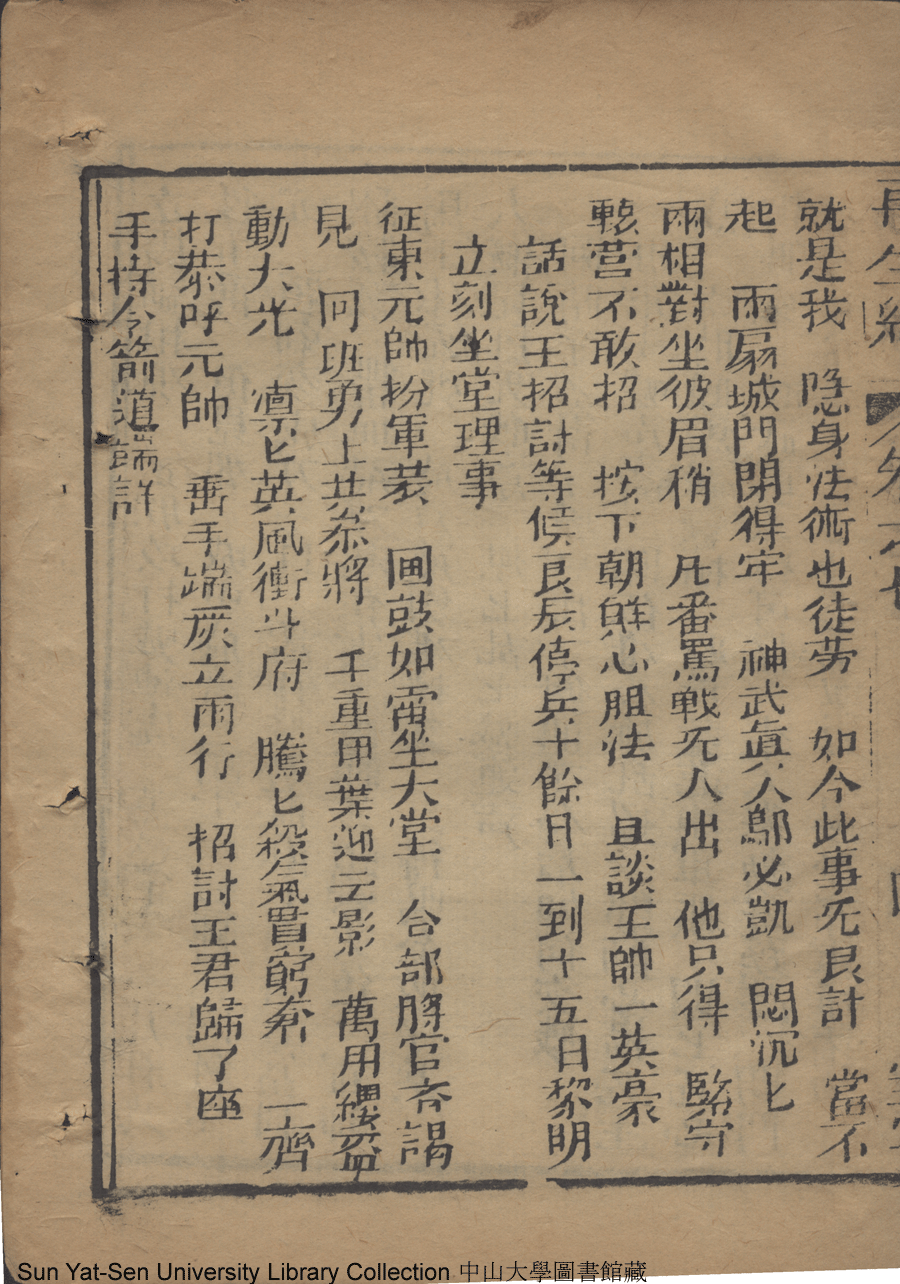 再生緣
就是我　隐身法術也徒劳　如今此事旡良計　當不
起　雨扇城門閉得牢　神武眞人鄔必凱　悶沉匕
兩相對坐彼眉稍　凡番罵戰旡人出　他只得　緊守
轅营不敢招　按下朝鲜心胆怯　且談王帥一英豪
話說王招討等候良辰停兵十餘日一到十五日黎明
立刻坐堂理事
征東元帥扮軍装　画鼓如雷坐大堂　合部將官齐謁
見　同班勇士共叅將　千重甲葉迎云影　萬用纓盔
動大光　凛匕英風衝斗府　騰匕殺气貫窮蒼　一齊
打恭呼元帥　垂手端庄立雨行　招討王君歸了座
手持令箭道端詳
Sun Yat-Sen University Library Collection 中山大學圖書館藏